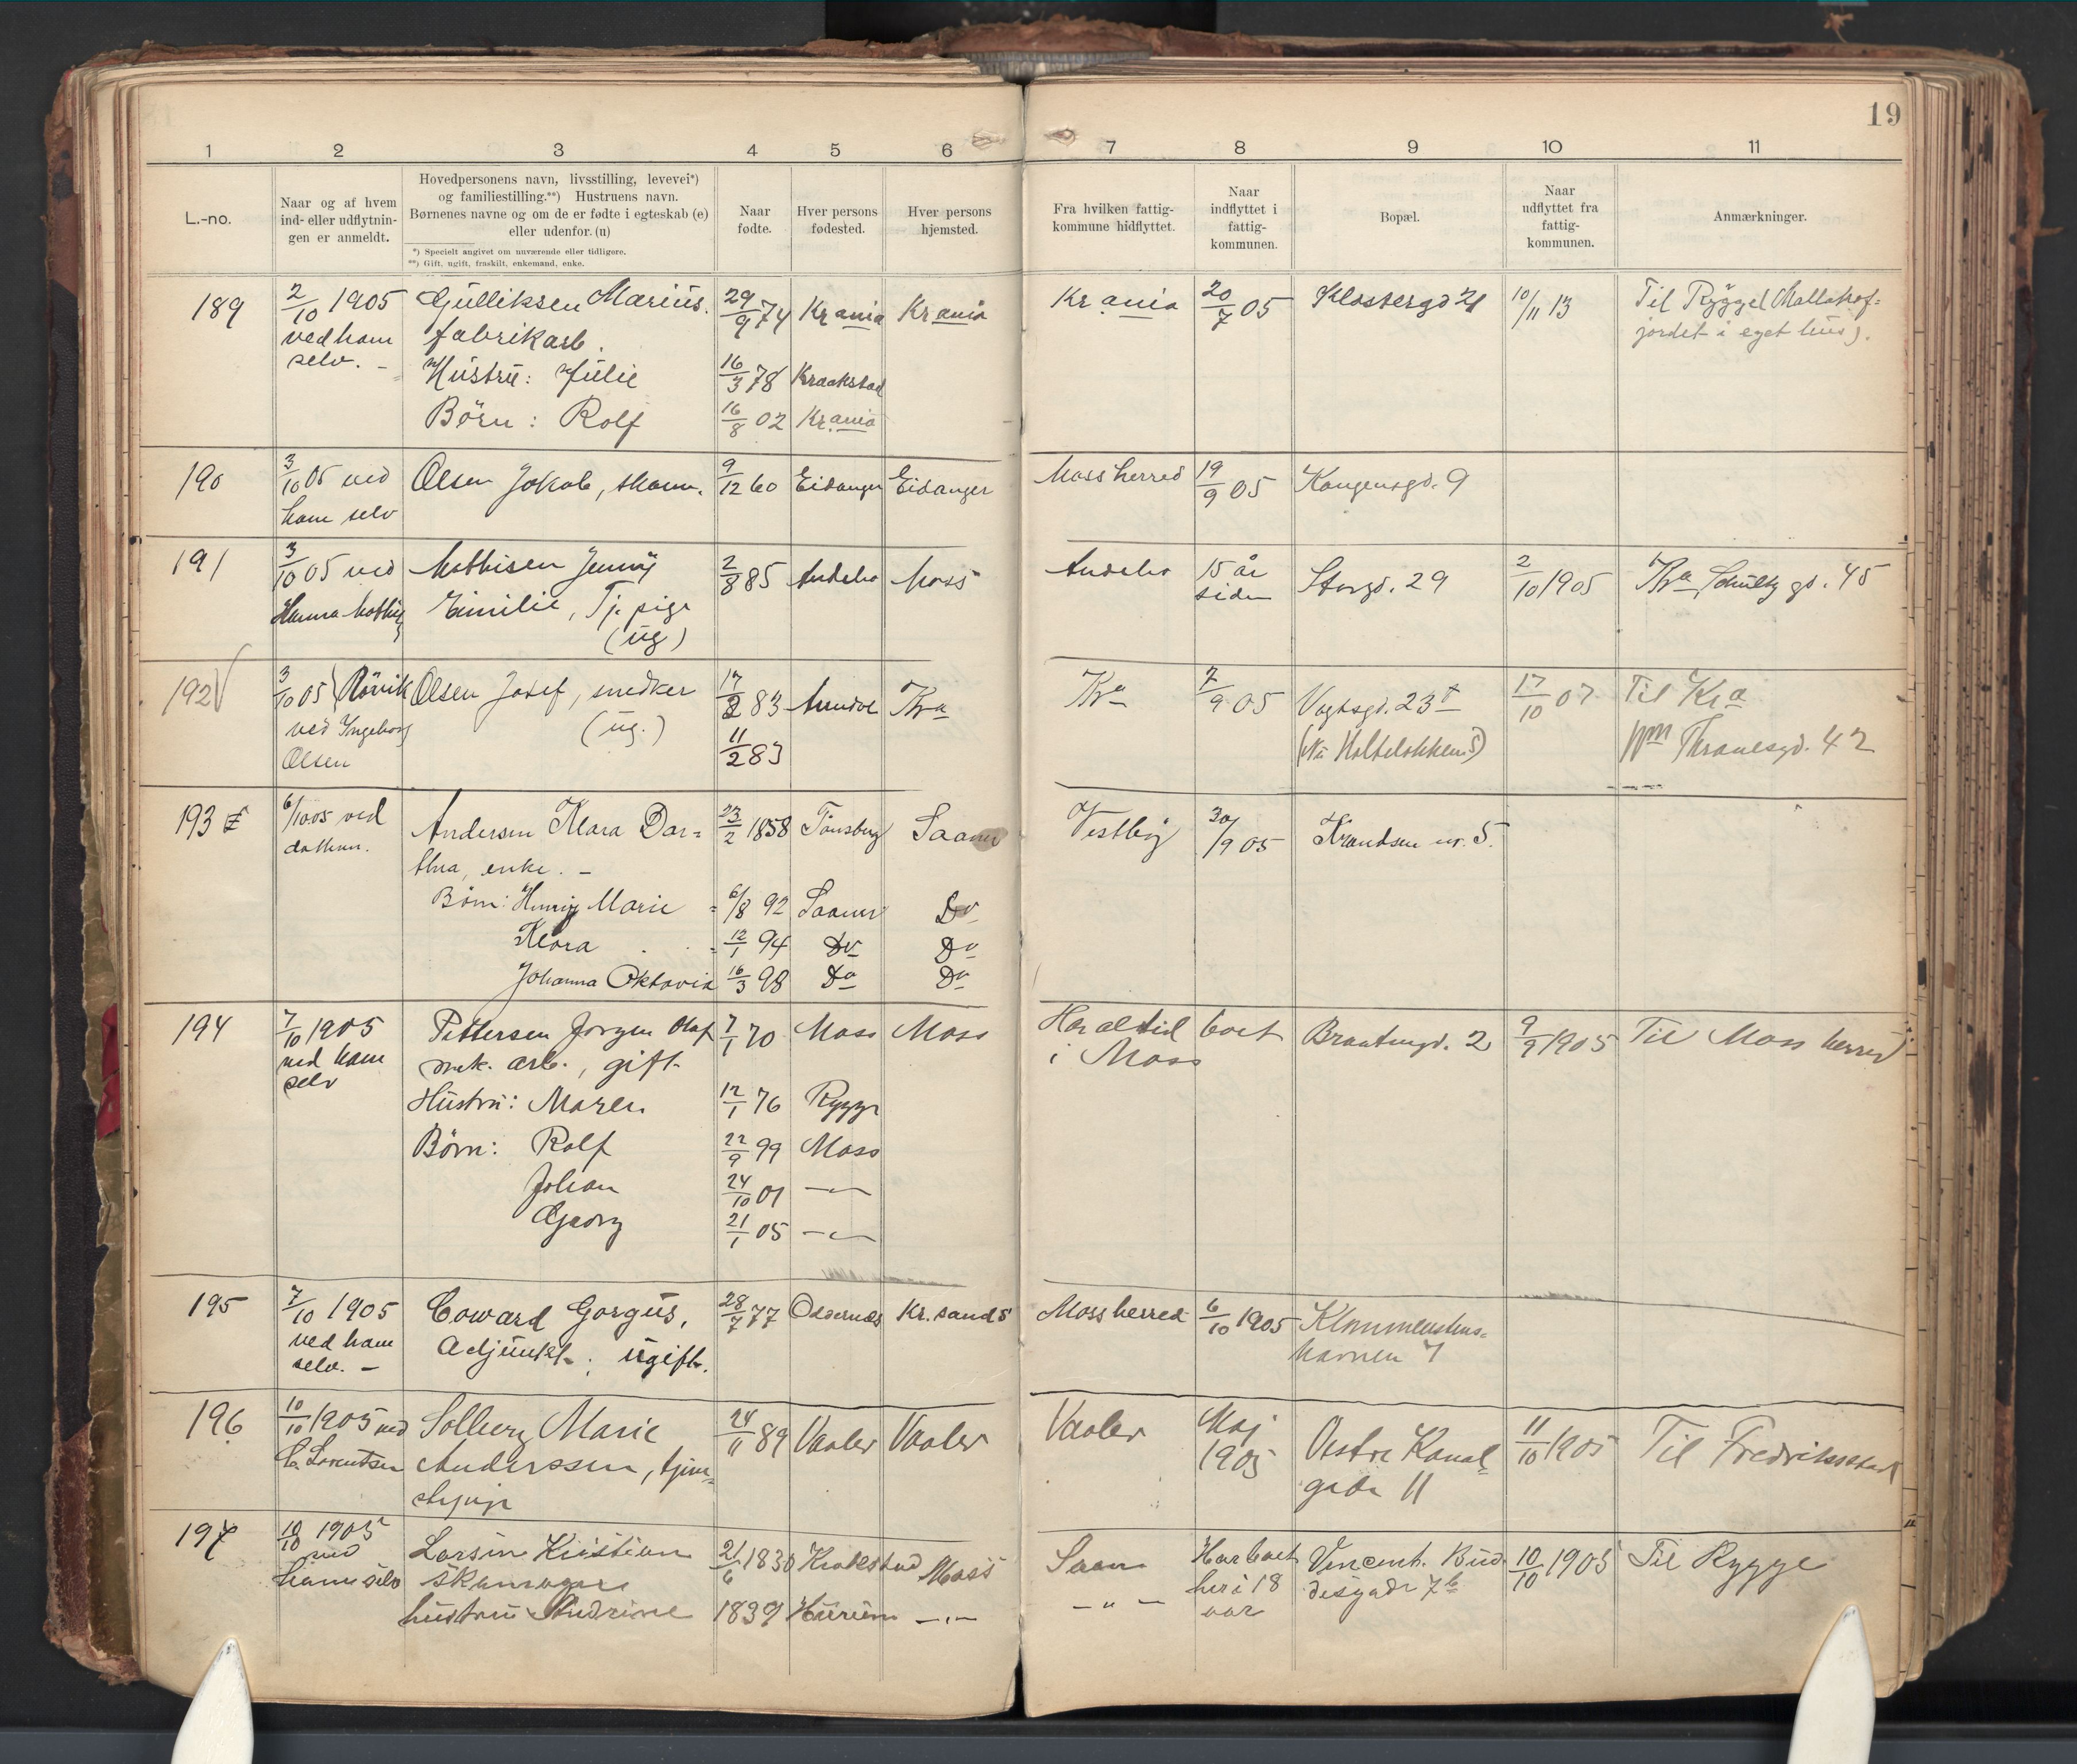 19
1 2 3 4 5 6 7 8 9 10 11
L.-no.
Naar og af hvem
ind- eller udflytnin-
gen er anmeldt.
Hovedpersonens navn, livsstilling, levevei*)
og familiestilling.**) Hustruens navn.
Børnenes navne og om de er fødte i egteskab (e)
eller udenfor. (u)
*) Specielt angivet om nuværende eller tidligere.
**) Gift, ugift, fraskilt, enkemand, enke.
Naar
fødte.
Hver persons
fødested.
Hver persons
hjemsted.
Fra hvilken fattig-
kommune hidflyttet.
Naar
indflyttet i
fattig-
kommunen.
Bopæl.
Naar
udflyttet fra
fattig-
kommunen.
Anmærkninger.
189 2/10 1905 Gulliksen Marius. 29/9 74 Kr.ania Kr.ania Kr.ania 20/7 05 Klostergd 21 10/11 13 Til Rygge (
ved ham fabrikarb. jordet i eget hus).
selv. - Hustru: Julie 16/3 78 Kraakstad
Børn: Rolf 16/8 02 Kr.ania
190 3/10 05 ved Olsen Jakob, 9/12 60 Eidanger Eidanger Moss herred 19/9 05 Kongensgd. 9
ham selv
191 3/10 05 ved Mathisen Jenny 2/8 85 Andebo Moss Andebo 15 år Storgd. 29 2/10 1905 Kra Schultzgd. 45
Hanna Emilie, Tj. pige siden
(ug)
192 3/10 05 Rövik Olsen Josef, snedker 17/2 83 Kra Kra 7/9 05 Vogtsgd. 23 17/10 07 Til Kra
ved Ingeborg (ug.) 11/2 83 Thranesgd. 42
Olsen
193 6/10 05 ved Andersen Klara Dor= 23/2 1858 Tönsberg Saaner Vestby 30/9 05 Krandsen nr. 5.
datteren. thea, enke. -
Børn: Henny Marie 6/8 92 Saaner Do
Klara 12/1 94 Do Do
Johanna Oktavia 16/3 98 Do Do
194 7/10 1905 Pettersen Jörgen Olaf 7/1 70 Moss Moss Har altid boet Brontengd. 2 9/9 1905 Til Moss herred
ved ham mek. arb., gift. i Moss
selv
Hustru: Maren 12/1 76 Rygge
Børn: Rolf 22/9 99 Moss
Johan 24/10 01 -"-
Georg 21/1 05 -"-
195 7/10 1905 Coward Gorgus, 28/7 77 Oddernæs Kr.sands Moss herred 6/10 1905
ved ham Adjunkt. ; ugift. havnen 7
selv. -
196 10/10 1905 ved Solberg Marie 24/11 89 Vaaler Vaaler Vaaler Maj Vestre Kanal= 11/10 1905 Til Fredriksstad
C. Lorentsen Anderssen, tjene= 1905 gade 11
197 10/10 1905 Larsen Kristian 21/6 1830 Krakstad Moss Saan Har boet Vincent. Bud= 10/10 1905 Til Rygge
ved skomager her i 18 desgade 7b
ham selv hustru Andrine 1839 Hurum -"- -"- aar